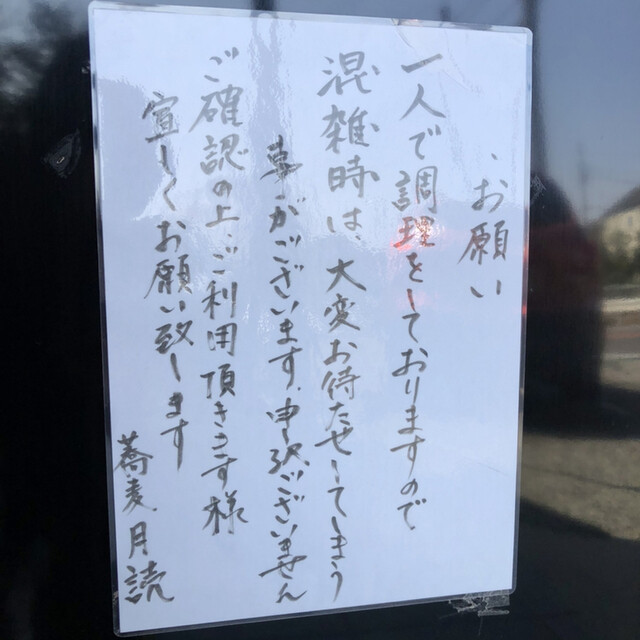 ・お願い
一人で調理をしておりますので
混雑時は、大変お待たせしてしまう
事がございます。申訳ございません
ご確認の上ご利用頂きます様
宜しくお願い致します
蕎麦月読